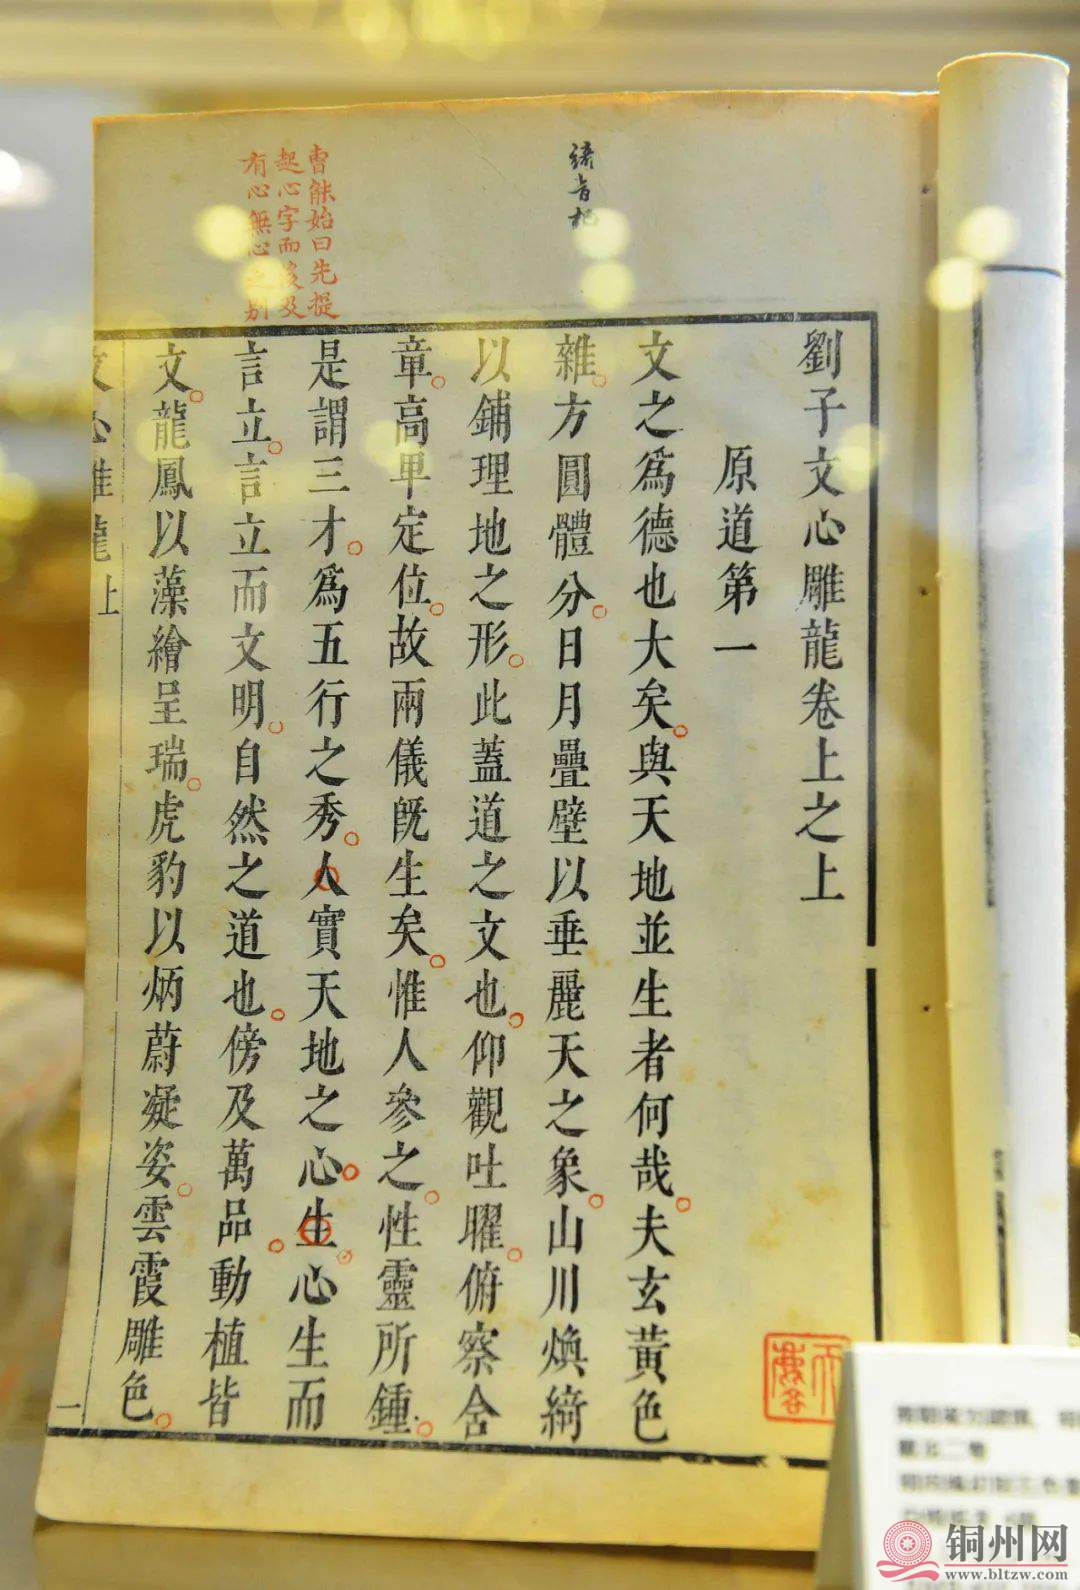 劉子文心雕龍卷上之上
原道第一
文之爲德也大矣與天地並生者何哉夫玄黃色
雜方圓體分日月疊壁以垂麗天之象山川煥綺
以鋪理地之形此蓋道之文也仰觀吐曜俯察含
章高卑定位故兩儀旣生矣惟人參之性靈所鍾
是謂三才爲五行之秀人實天地之心生心生而
言立言立而文明自然之道也傍及萬品動植皆
文龍鳳以藻繪呈瑞虎豹以炳蔚凝姿雲霞雕色
文心雕龍上
一
曹能始曰先提
起心字而後及
有心無心之别
铜州网
www.bltzw.com